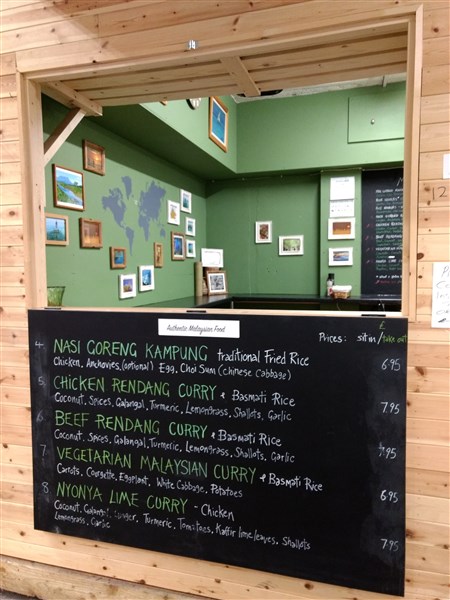 Authentic Malaysian Food
£
Prices: sit in / take out
4. NASI GORENG KAMPUNG traditional Fried Rice
Chicken, Anchovies, (optional) Egg, Choi Sum (chinese cabbage) 6.95
5. CHICKEN RENDANG CURRY & Basmati Rice
Coconut, Spices, Galangal, Turmeric, Lemongrass, Shallots, Garlic 7.95
6 BEEF RENDANG CURRY & Basmati Rice
Coconut, Spices, Galangal, Turmeric, Lemongrass, Shallots, Garlic 7.95
7 VEGETARIAN MALAYSIAN CURRY & Basmati Rice
Carots, Courgette, Eggplant, White Cabbage, Potatoes 6.95
8 NYONYA LIME CURRY - Chicken
Coconut, Galangal, Ginger, Turmeric, Tomatoes, Kaffir lime leaves, Shallots
Lemongrass, Garlic 7.95